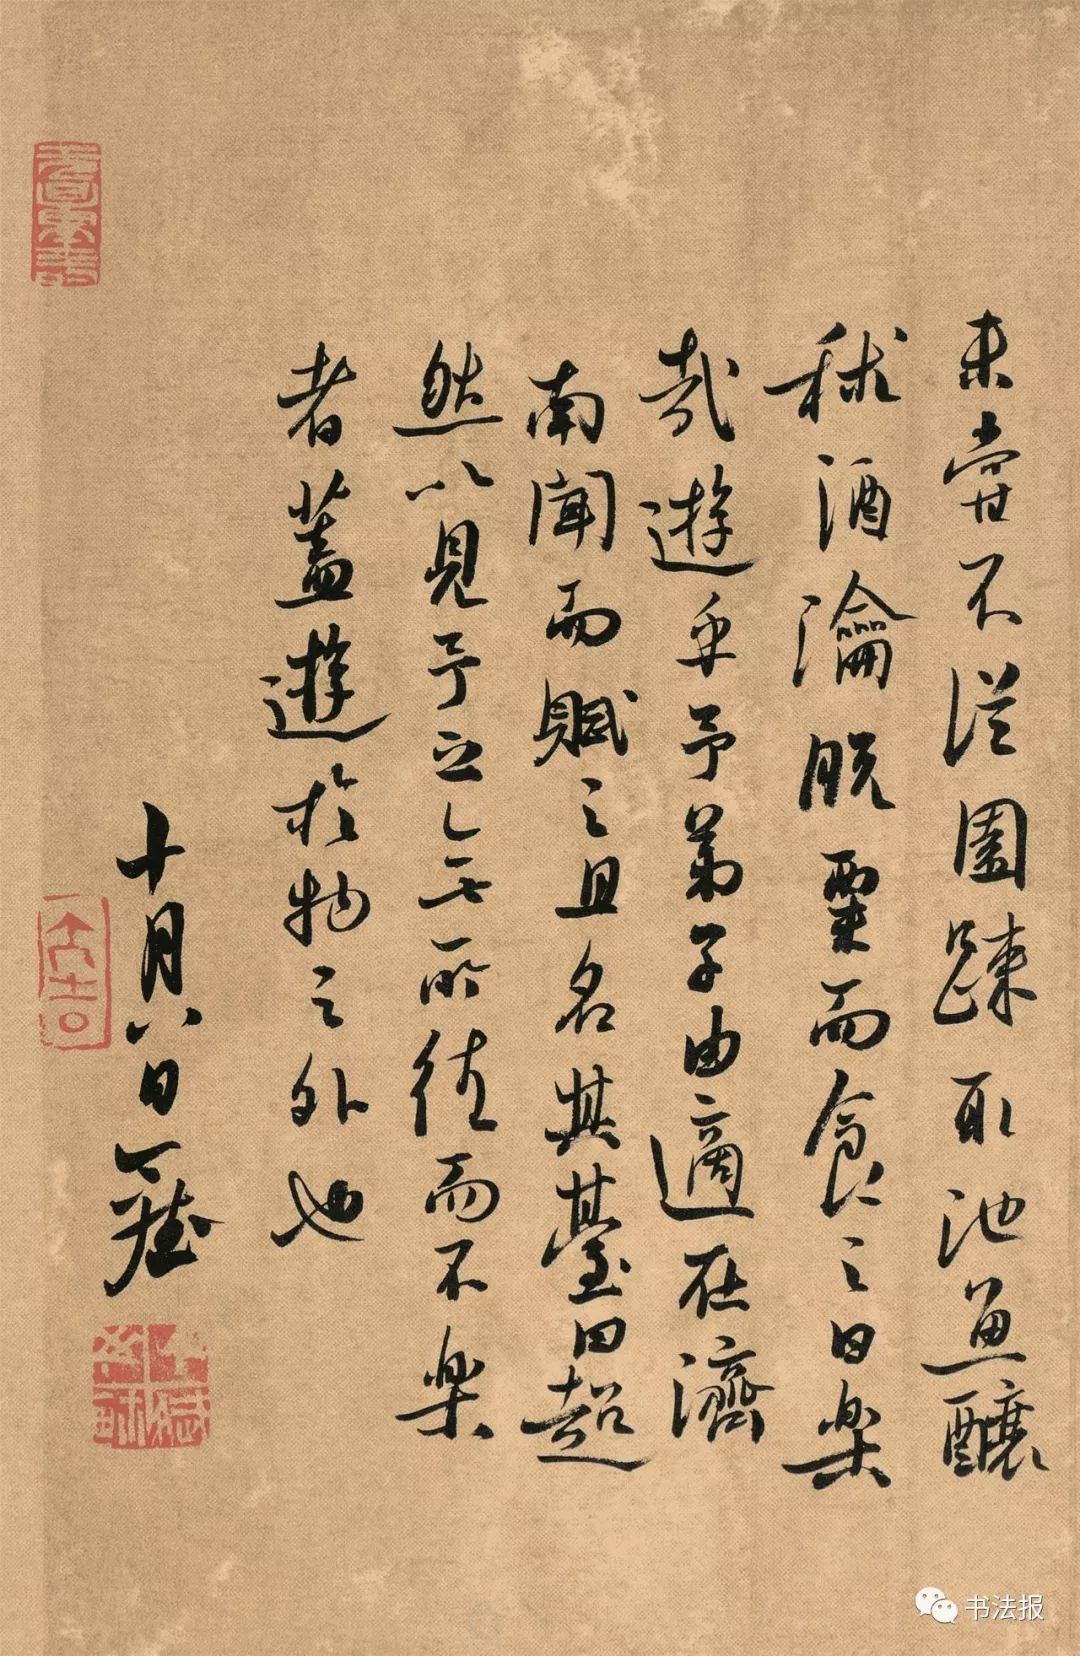 未嘗不從園蔬取池魚釀
秫酒瀹脫粟而食之曰樂
哉遊乎予弟子由適在濟
南聞而賦之且名其臺曰超
然以見予之無所往而不樂
者蓋遊於物之外也
十月八日
书法报